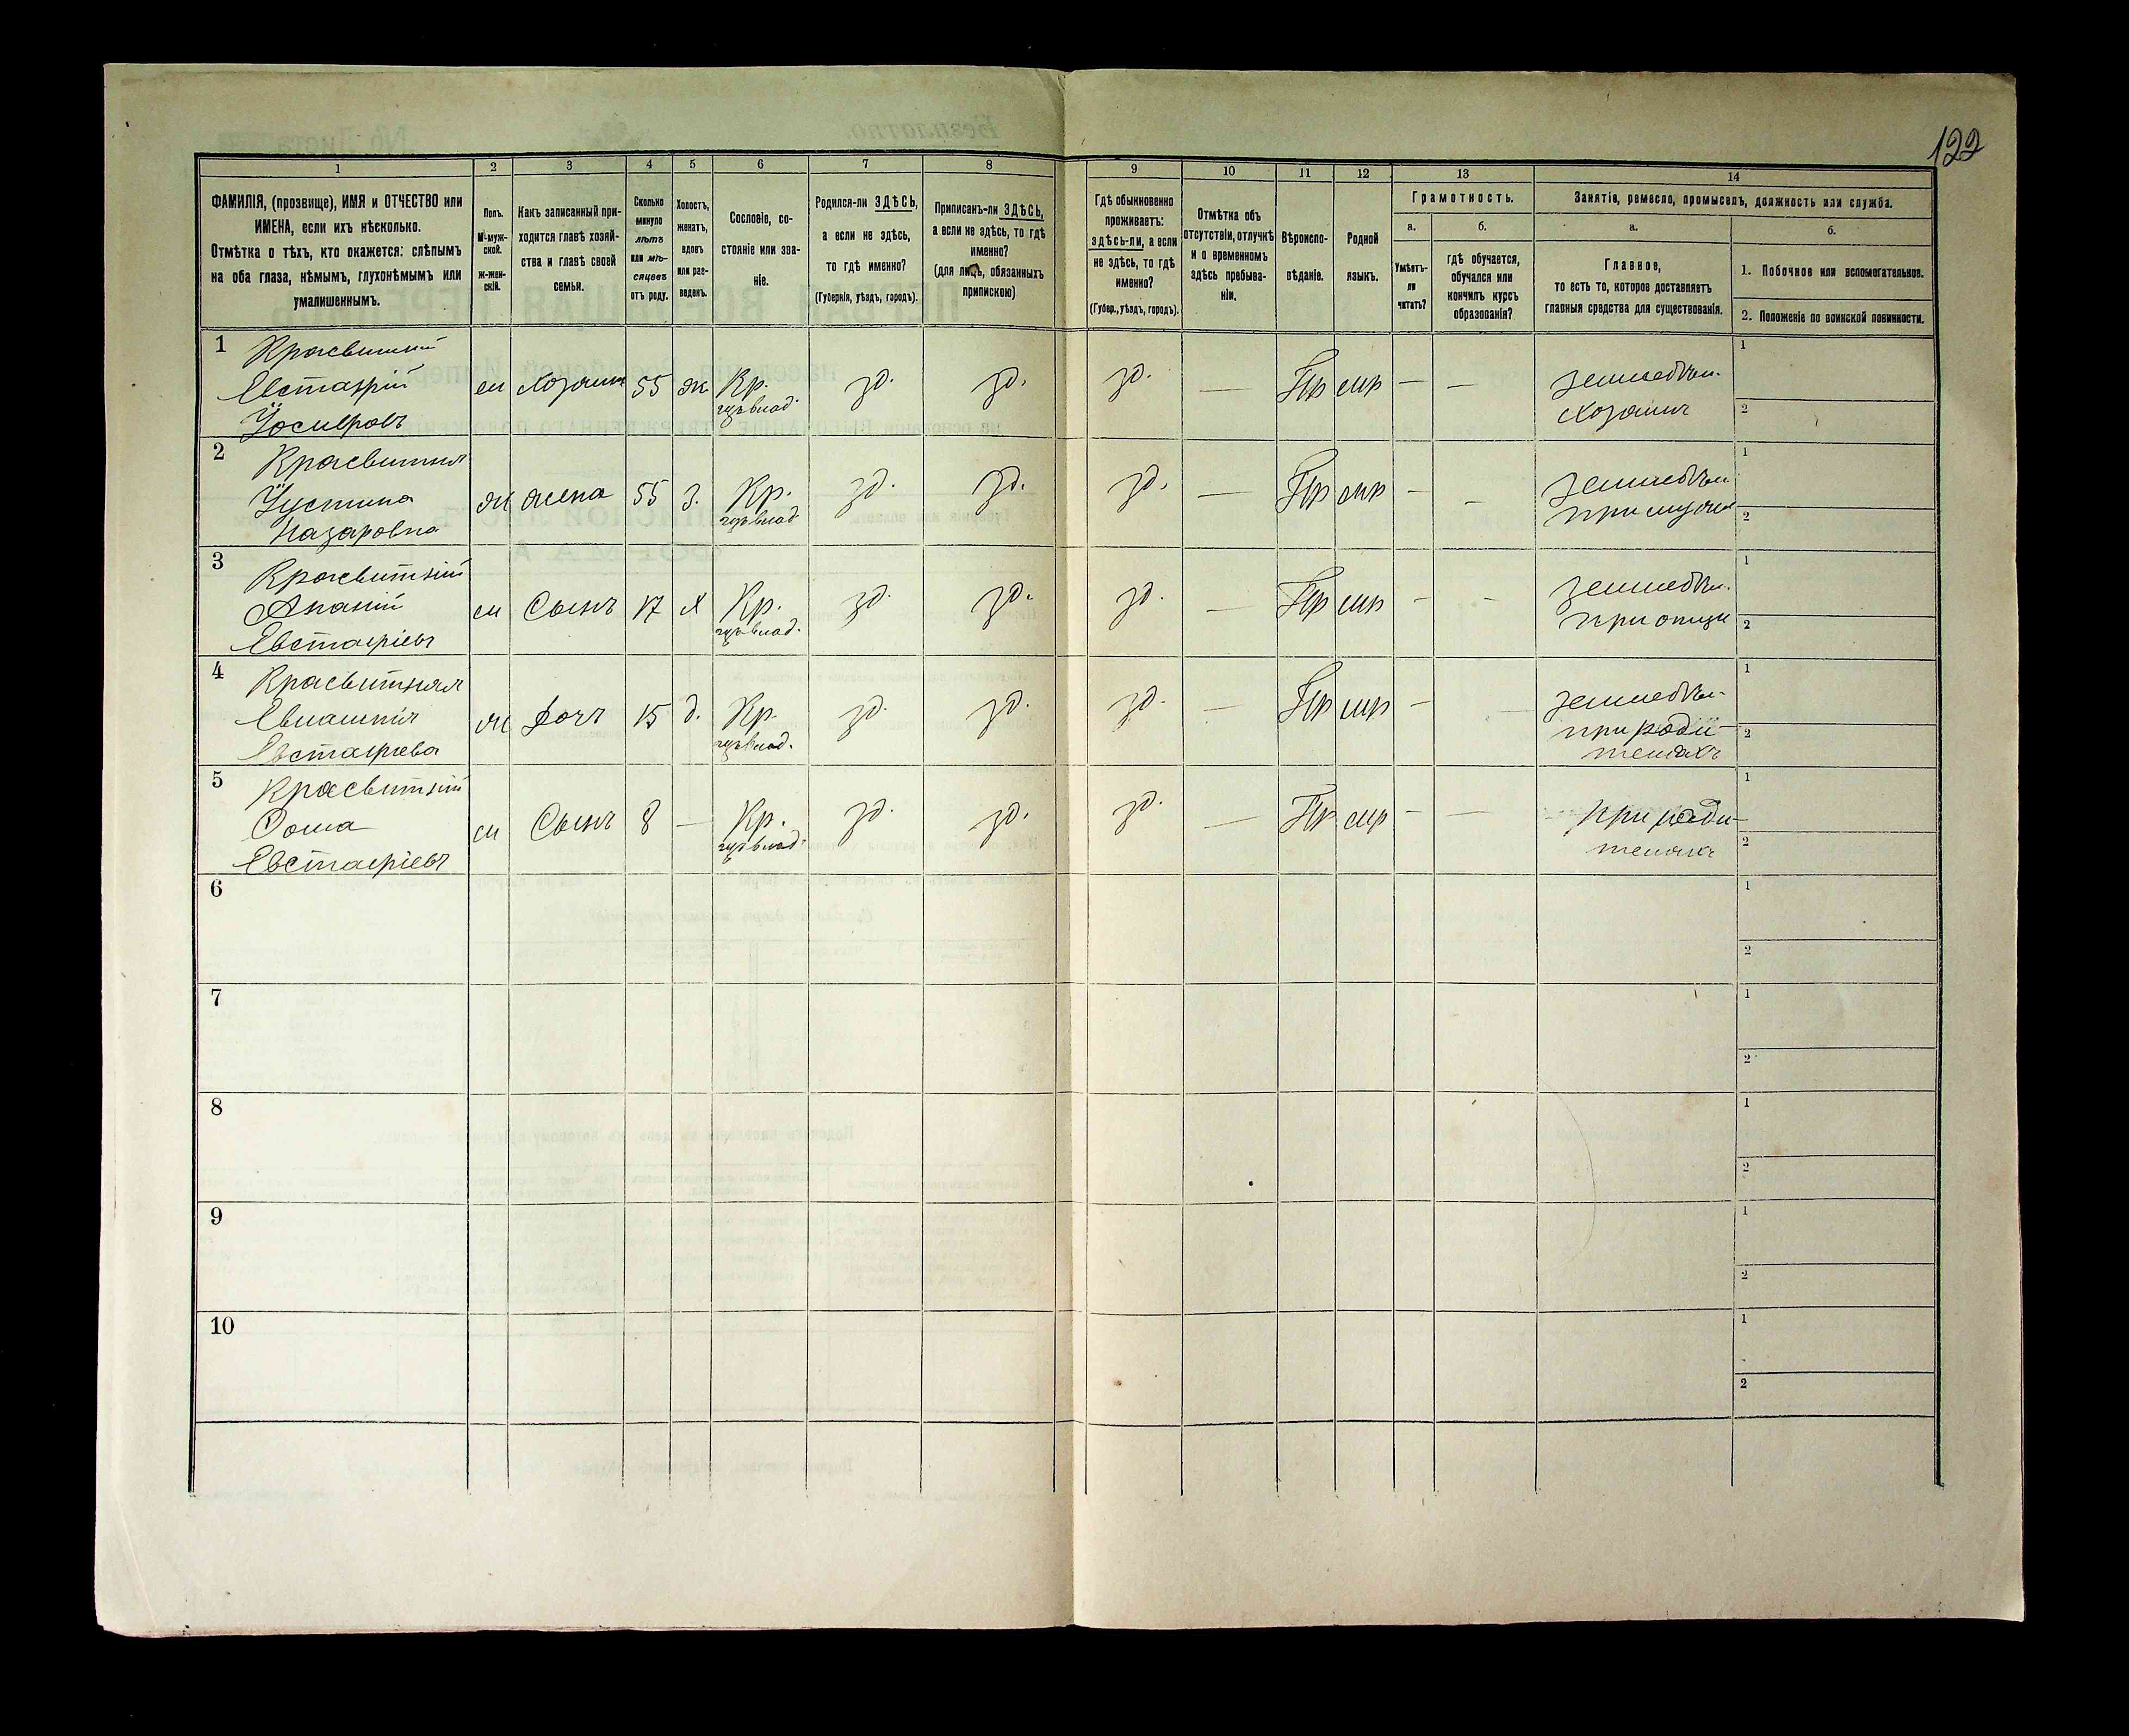 122
1 2 3 4 5 6 7 8 9 10 11 12 13 14
ФАМИЛІЯ, (прозвище), ИМЯ и ОТЧЕСТВО или
ИМЕНА, если ихъ нѣсколько.
Отмѣтка о тѣхъ, кто окажется: слѣпымъ
на оба глаза, нѣмымъ, глухонѣмымъ или
умалишеннымъ.
Полъ.
М-муж-
ской.
ж-жен-
скій.
Какъ записанный при-
ходится главѣ хозяй-
ства и главѣ своей
семьи.
Сколько
минуло
лѣтъ
или мѣ-
сяцевъ
отъ роду.
Холостъ,
женатъ,
вдовъ
или раз-
веденъ.
Сословіе, со-
стояніе или зва-
ніе.
Родился-ли ЗДѢСЬ,
а если не здѣсь,
то гдѣ именно?
(Губернія, уѣздъ, городъ).
Приписанъ-ли ЗДѢСЬ,
а если не здѣсь, то гдѣ
именно?
(для лицъ, обязанныхъ
припискою)
Гдѣ обыкновенно
проживаетъ:
здѣсь-ли, а если
не здѣсь, то гдѣ
именно?
(Губер., уѣздъ, городъ).
Отмѣтка объ
отсутствіи, отлучкѣ
и о временномъ
здѣсь пребыва-
ніи.
Вѣроиспо-
вѣданіе.
Родной
языкъ.
Грамотность.
а.
Умѣетъ-
ли
читать?
б.
гдѣ обучается,
обучался или
кончилъ курсъ
образованія?
Занятіе, ремесло, промыселъ, должность или служба.
а.
Главное,
то есть то, которое доставляетъ
главныя средства для существованія.
б.
1. Побочное или вспомогательное.
2. Положеніе по воинской повинности.
1
Евстафій
Іосифовъ
м хозяинъ 55 ж Кр. зд. зд. зд. — Пр мр — —
хозяинъ
1
2
2
Устина
Назаровна
ж жена 55 з. Кр. зд. зд. зд. — Пр мр — —
при мужѣ
1
2
3 Красвитній
Ананій
Евстафіевъ
м Сынъ 17 х Кр. зд. зд. зд. — Пр мр — —
при отцѣ
1
2
4 Красвитняя
Евстафіева
ж дочь 15 д. Кр. зд. зд. зд. — Пр мр — —
при роди-
теляхъ
1
2
5 Красвитній
Ѳома
Евстафіевъ
м Сынъ 8 — Кр. зд. зд. зд. — Пр мр — —
при роди-
теляхъ
1
2
6
1
2
7
1
2
8
1
2
9
1
2
10
1
2